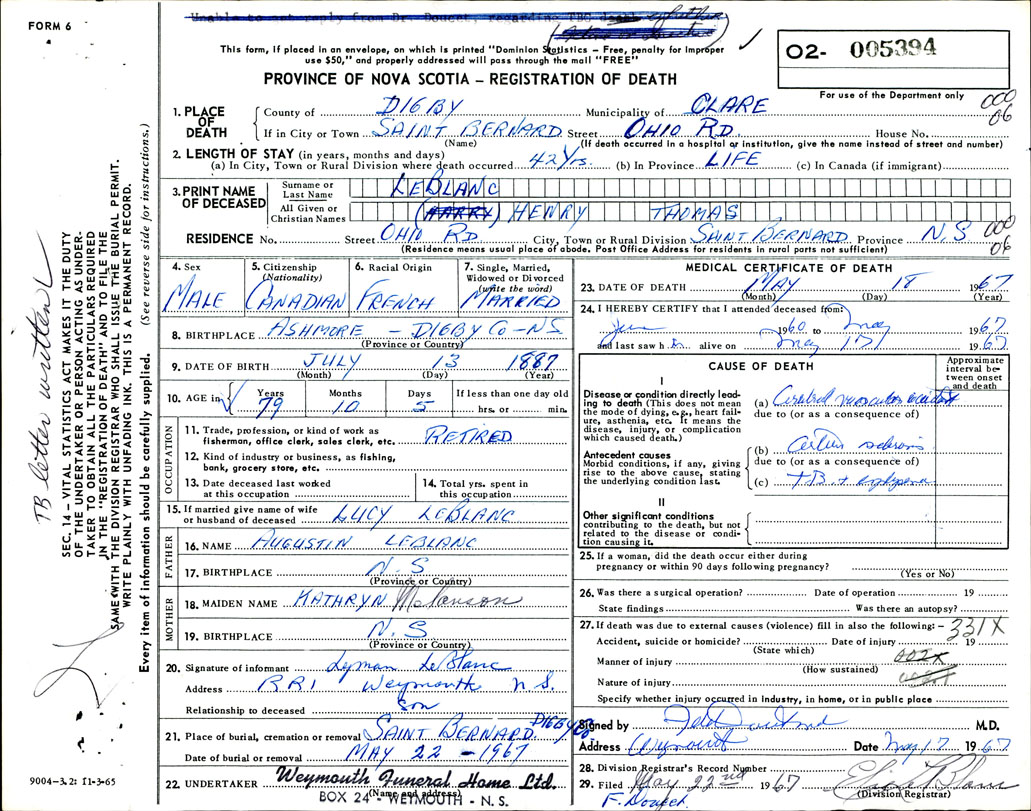 FORM 6
Unable to get reply from Dr. Doucet, regarding TBC
This form, if placed in an envelope, on which is printed "Dominion Statistics – Free, penalty for improper
use $50," and properly addressed will pass through the mail "FREE"
PROVINCE OF NOVA SCOTIA – REGISTRATION OF DEATH
O2- 005394
For use of the Department only
000
06
1. PLACE OF DEATH
County of DIGBY Municipality of CLARE
If in City or Town SAINT BERNARD Street OHIO RD House No.
(Name) (If death occurred in a hospital or institution, give the name instead of street and number)
2. LENGTH OF STAY (in years, months and days)
(a) In City, Town or Rural Division where death occurred 42 Yrs. (b) In Province LIFE (c) In Canada (if immigrant)
3. PRINT NAME OF DECEASED
Surname or Last Name LEBLANC
All Given or Christian Names (HARRY) HENRY THOMAS
RESIDENCE No. Street OHIO RD City, Town or Rural Division SAINT BERNARD Province N.S
000
06
(Residence means usual place of abode. Post Office Address for residents in rural parts not sufficient)
4. Sex MALE
5. Citizenship (Nationality) CANADIAN
6. Racial Origin FRENCH
7. Single, Married, Widowed or Divorced (write the word) MARRIED
8. BIRTHPLACE ASHMORE – DIGBY CO – NS
(Province or Country)
9. DATE OF BIRTH JULY 13 1887
(Month) (Day) (Year)
10. AGE in Years 79 Months 10 Days 5 If less than one day old hrs. or min.
OCCUPATION
11. Trade, profession, or kind of work as fisherman, office clerk, sales clerk, etc. RETIRED
12. Kind of industry or business, as fishing, bank, grocery store, etc.
13. Date deceased last worked at this occupation
14. Total yrs. spent in this occupation
15. If married give name of wife or husband of deceased LUCY LEBLANC
FATHER
16. NAME AUGUSTIN LEBLANC
17. BIRTHPLACE N.S
(Province or Country)
MOTHER
18. MAIDEN NAME KATHRYN Melanson
19. BIRTHPLACE N.S
(Province or Country)
20. Signature of informant Lyman LeBlanc
Address RR1 Weymouth N.S.
Relationship to deceased Son
21. Place of burial, cremation or removal SAINT BERNARD DIGBY CO
Date of burial or removal MAY 22 – 1967
22. UNDERTAKER Weymouth Funeral Home Ltd.
(Name and address)
BOX 24 - WEYMOUTH - N.S.
MEDICAL CERTIFICATE OF DEATH
23. DATE OF DEATH MAY 18 1967
(Month) (Day) (Year)
24. I HEREBY CERTIFY that I attended deceased from:
June 1960 to May 1967
and last saw him alive on May 17 1967
CAUSE OF DEATH
Approximate interval between onset and death
I
Disease or condition directly leading to death (This does not mean the mode of dying, e.g., heart failure, asthenia, etc. It means the disease, injury, or complication which caused death.)
(a) Cerebral vascular accident
due to (or as a consequence of)
Antecedent causes
Morbid conditions, if any, giving rise to the above cause, stating the underlying condition last.
(b)
due to (or as a consequence of)
(c) TB +
II
Other significant conditions
contributing to the death, but not related to the disease or condition causing it.
25. If a woman, did the death occur either during pregnancy or within 90 days following pregnancy?
(Yes or No)
26. Was there a surgical operation? Date of operation 19
State findings Was there an autopsy?
27. If death was due to external causes (violence) fill in also the following:– 331X
Accident, suicide or homicide? Date of injury 19
(State which)
Manner of injury 002X
(How sustained)
Nature of injury
Specify whether injury occurred in industry, in home, or in public place
Signed by M.D.
Address Weymouth Date May 17 1967
28. Division Registrar's Record Number
29. Filed May 22nd 1967
(Division Registrar)
TB letter written
SEC. 14 – VITAL STATISTICS ACT MAKES IT THE DUTY
OF THE UNDERTAKER OR PERSON ACTING AS UNDER-
TAKER TO OBTAIN ALL THE PARTICULARS REQUIRED
IN THE "REGISTRATION OF DEATH" AND TO FILE THE
SAME WITH THE DIVISION REGISTRAR WHO SHALL ISSUE THE BURIAL PERMIT.
WRITE PLAINLY WITH UNFADING INK. THIS IS A PERMANENT RECORD.
Every item of information should be carefully supplied. (See reverse side for instructions.)
9004–3.2: 11-3-65